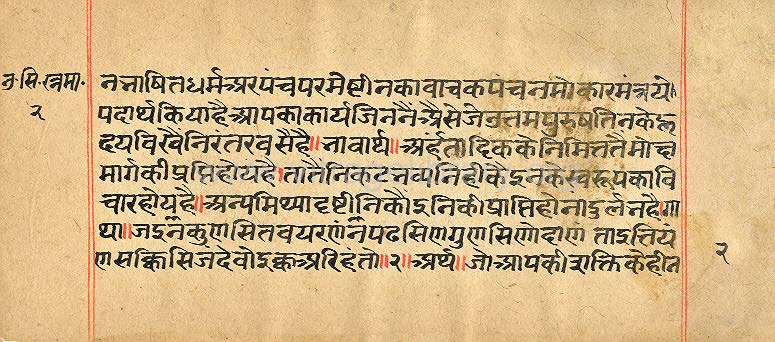 उ॰सि॰रत्नमा॰
२
नभाषितधर्मअरपंचपरमेष्टीनकावाचकपंचनमोकारमंत्रये
पदार्थकियाहैआपकाकार्यजिननैंअैसेजेउत्तमपुरुषतिनकेहृ
दयविखैनिरंतरवसैहै॥भावार्थ॥अर्हंतादिककेनिमित्ततैमोक्ष
मार्गकीप्राप्तिहोयहै।तातैनिकटभव्यनिहीकैइनकेस्वरूपकावि
चारहोयहै॥अन्यमिथ्यादृष्टीनिकौंइनिकीप्राप्तिहोनादुर्लभहै॥गा
था॥जइनकुणसितवयरणंनपढसिणगुणसिणोदाणं ताइत्तियं
णसक्किसिजदेवोइक्कअरिहंतो॥२॥अर्थ॥जोआपकीशक्तिकैहीन
२